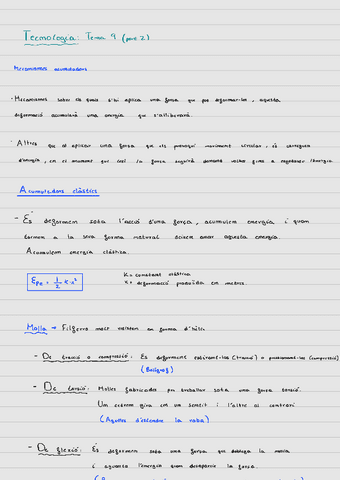 Tecnologia: Tema 9 (part 2)
Mecanismes acumuladors
· Mecanismes sobre els quals s'hi aplica una força que pot deformar-los, aquesta
deformació acumularà una energia que s'alliberarà.
· Altres que al aplicar una força que els provoqui moviment circular, es carreguen
d'energia, en el moment que cesi la força seguirà donant voltes fins a esgotar l'energia
Acumuladors elàstics
- Es deformen sota l'acció d'una força, acumulem energia i quan
tornem a la seva forma natural deixem anar aquesta energia.
Acumulem energia elàstica.
Epe = 1/2 K·x²
K= constant elàstica
X= deformació produïda em metres.
Molla → Fil ferro molt resistent en forma d'hèlix
- De tracció o compressió: Es deformem estirant-les (tracció) o pressionant-les (compressió)
(Bolígraf)
- De torsió: Molles fabricades per treballar sota una força torsió.
Un extrem gira em un sentit i l'altre al contrari
(Agulles d'estendre la roba)
- De flexió: Es deformem sota una força que doblega la molla
i aguanta l'energia quan desapareix la força.